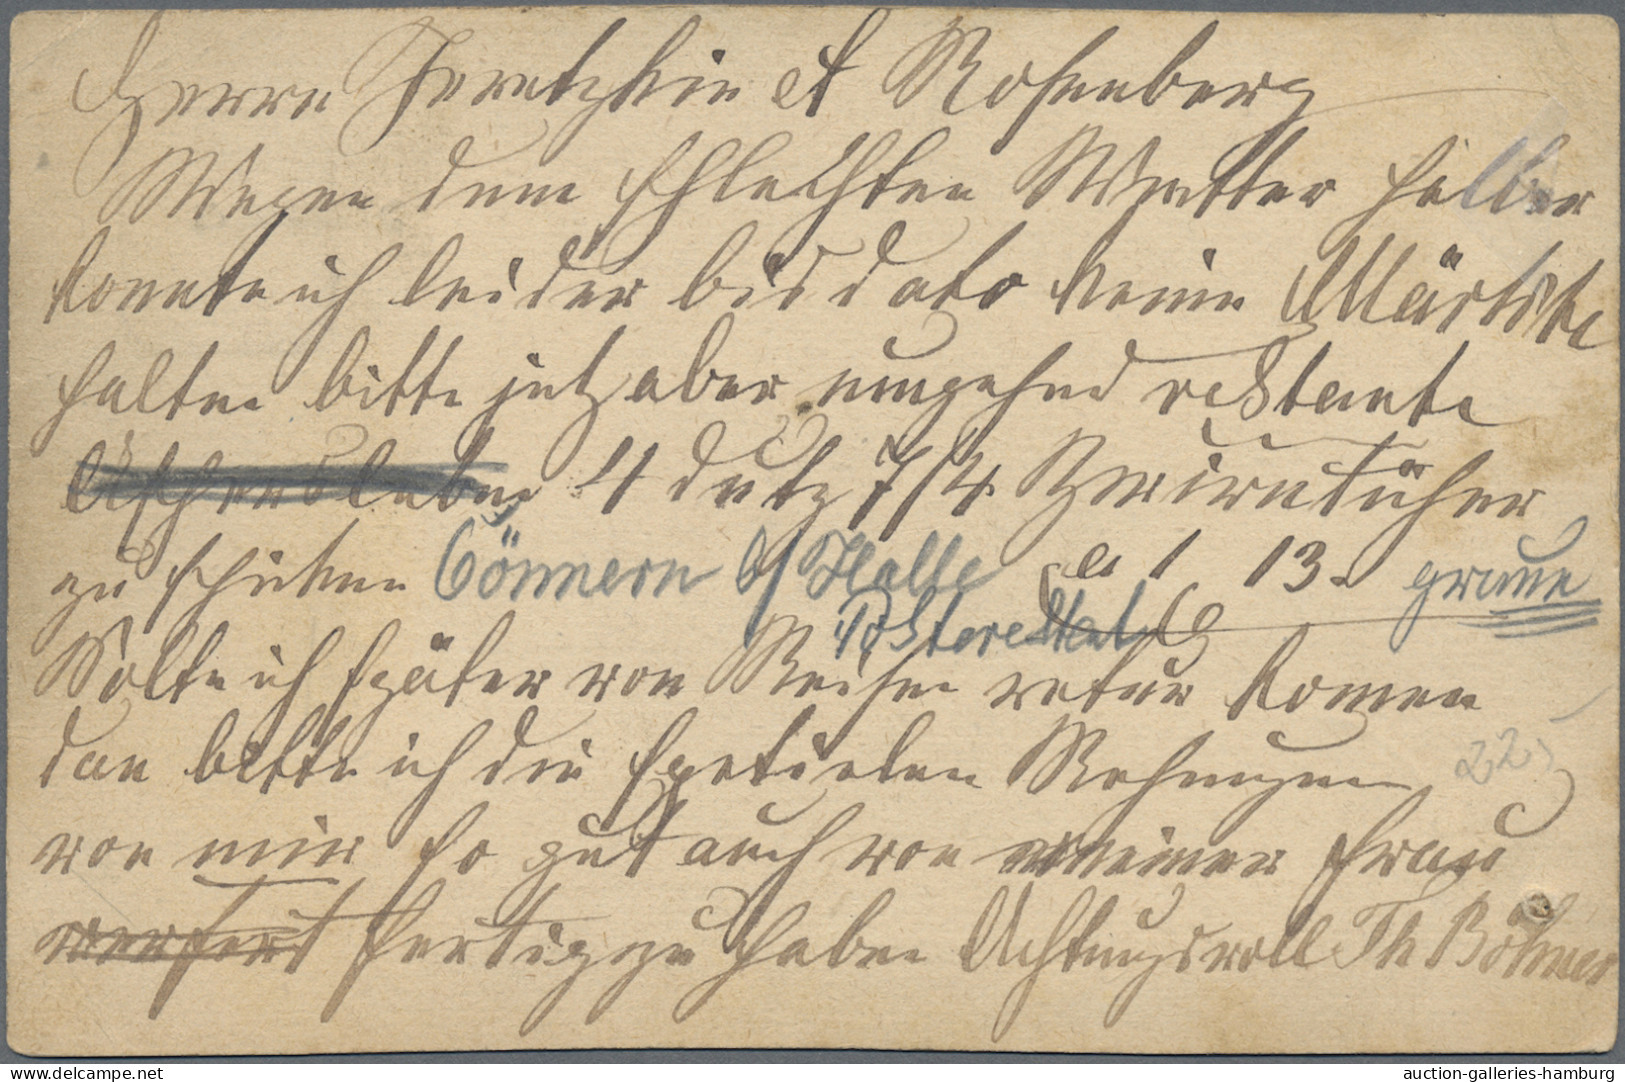 Herrn Jeretzkin et Rosenberg
Wegen dem schlechten Wetter halber
konnte ich leider bis dato keine Märkte
halten bitte jetz aber umgehend restante
Aschersleben 4 dutz 7/4 Zwirntücher
zu schicken Cönnern b/Halle a 1 13. graue
Postrestant
Solte ich später von Reisen retur komen
dan bitte ich die spetielen Rechnungen
22
von mir so gut auch von meiner Frau
fertig zu haben Achtungsvoll Th Böhmer
delcampe.net
auction-galleries-hamburg